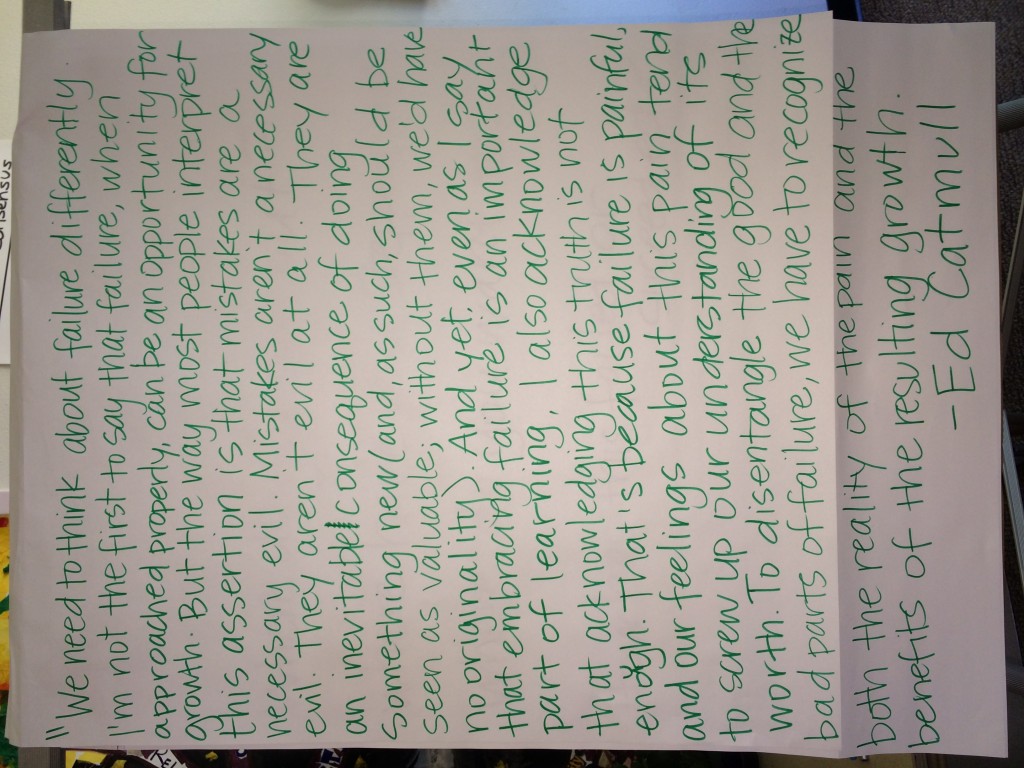 "We need to think about failure differently
I'm not the first to say that failure, when
approached properly, can be an opportunity for
growth. But the way most people interpret
this assertion is that mistakes are a
necessary evil. Mistakes aren't a necessary
evil. They aren't evil at all. They are
an inevitable consequence of doing
something new (and, as such, should be
seen as valuable; without them, we'd have
no originality). And yet, even as I say
that embracing failure is an important
part of learning, I also acknowledge
that acknowledging this truth is not
enough. That is because failure is painful,
and our feelings about this pain tend
to screw up our understanding of its
worth. To disentangle the good and the
bad parts of failure, we have to recognize
both the reality of the pain and the
benefits of the resulting growth.
- Ed Catmull